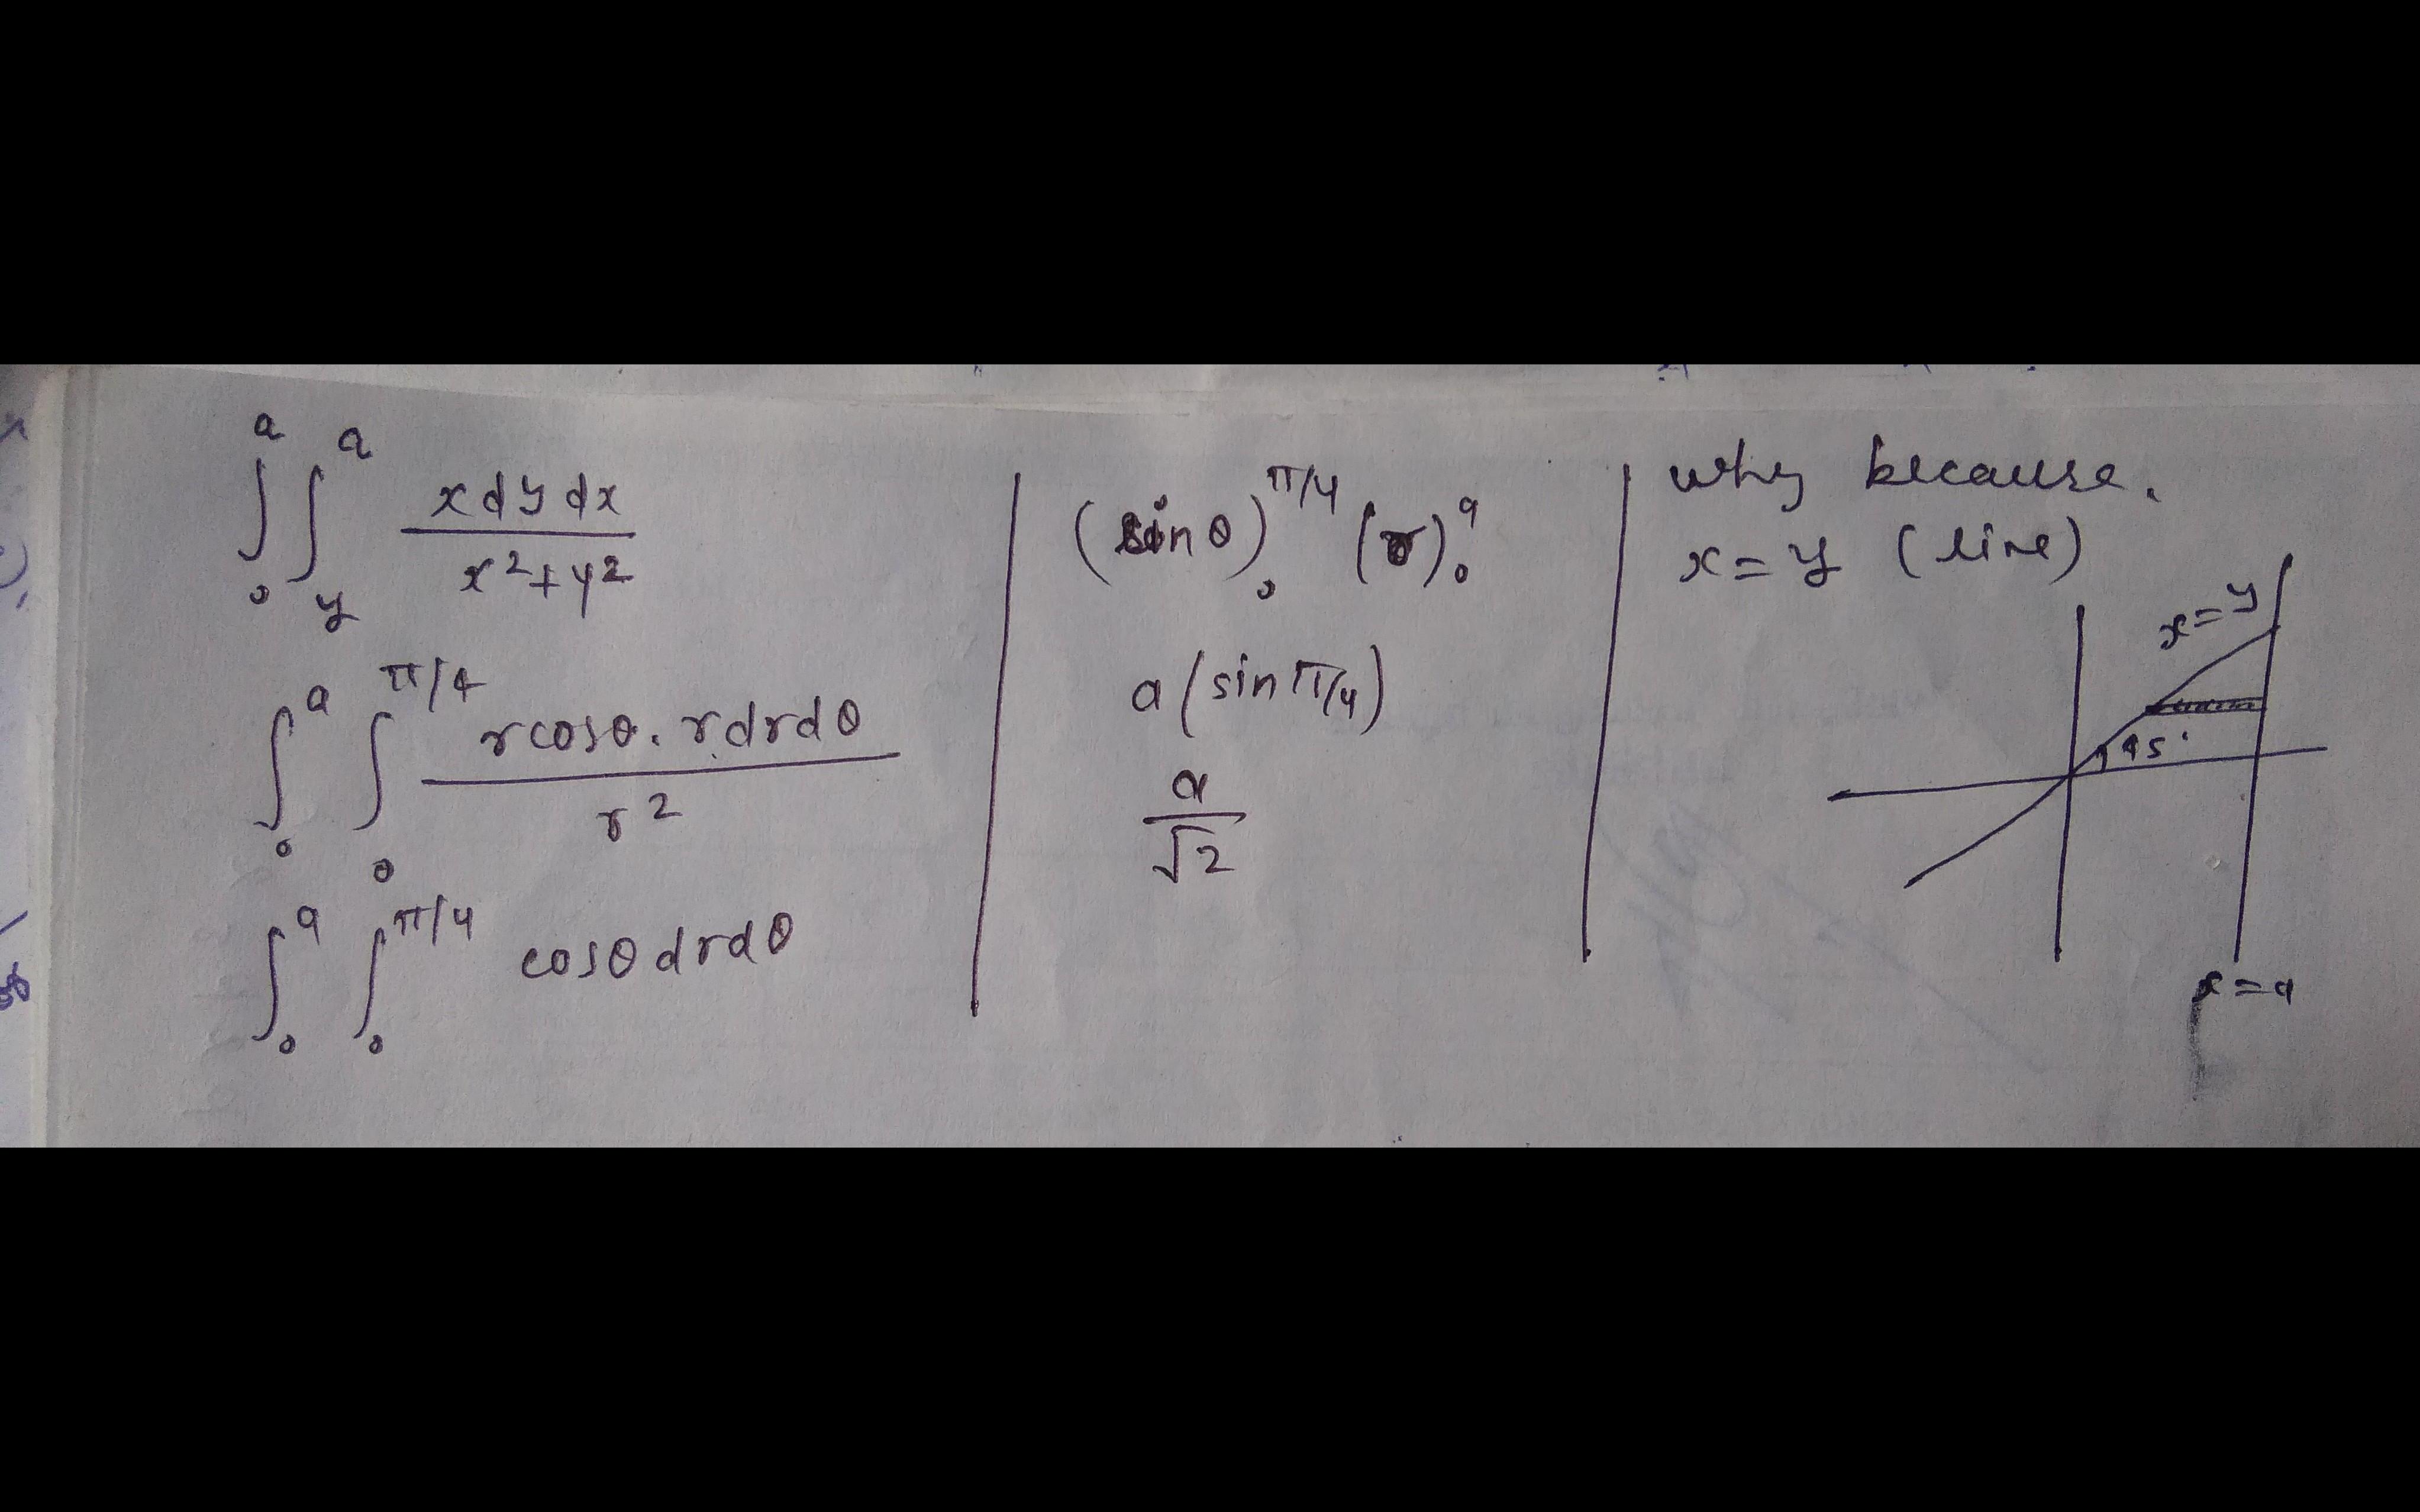 ∫₀^a ∫_y^a x dy dx / x²+y²
∫₀^a ∫₀^π/4 r cosθ . r dr dθ / r²
∫₀^a ∫₀^π/4 cosθ dr dθ
(sin θ)₀^π/4 (r)₀^a
a (sin π/4)
a / √2
why because.
x = y (line)
x = y
45°
x = a